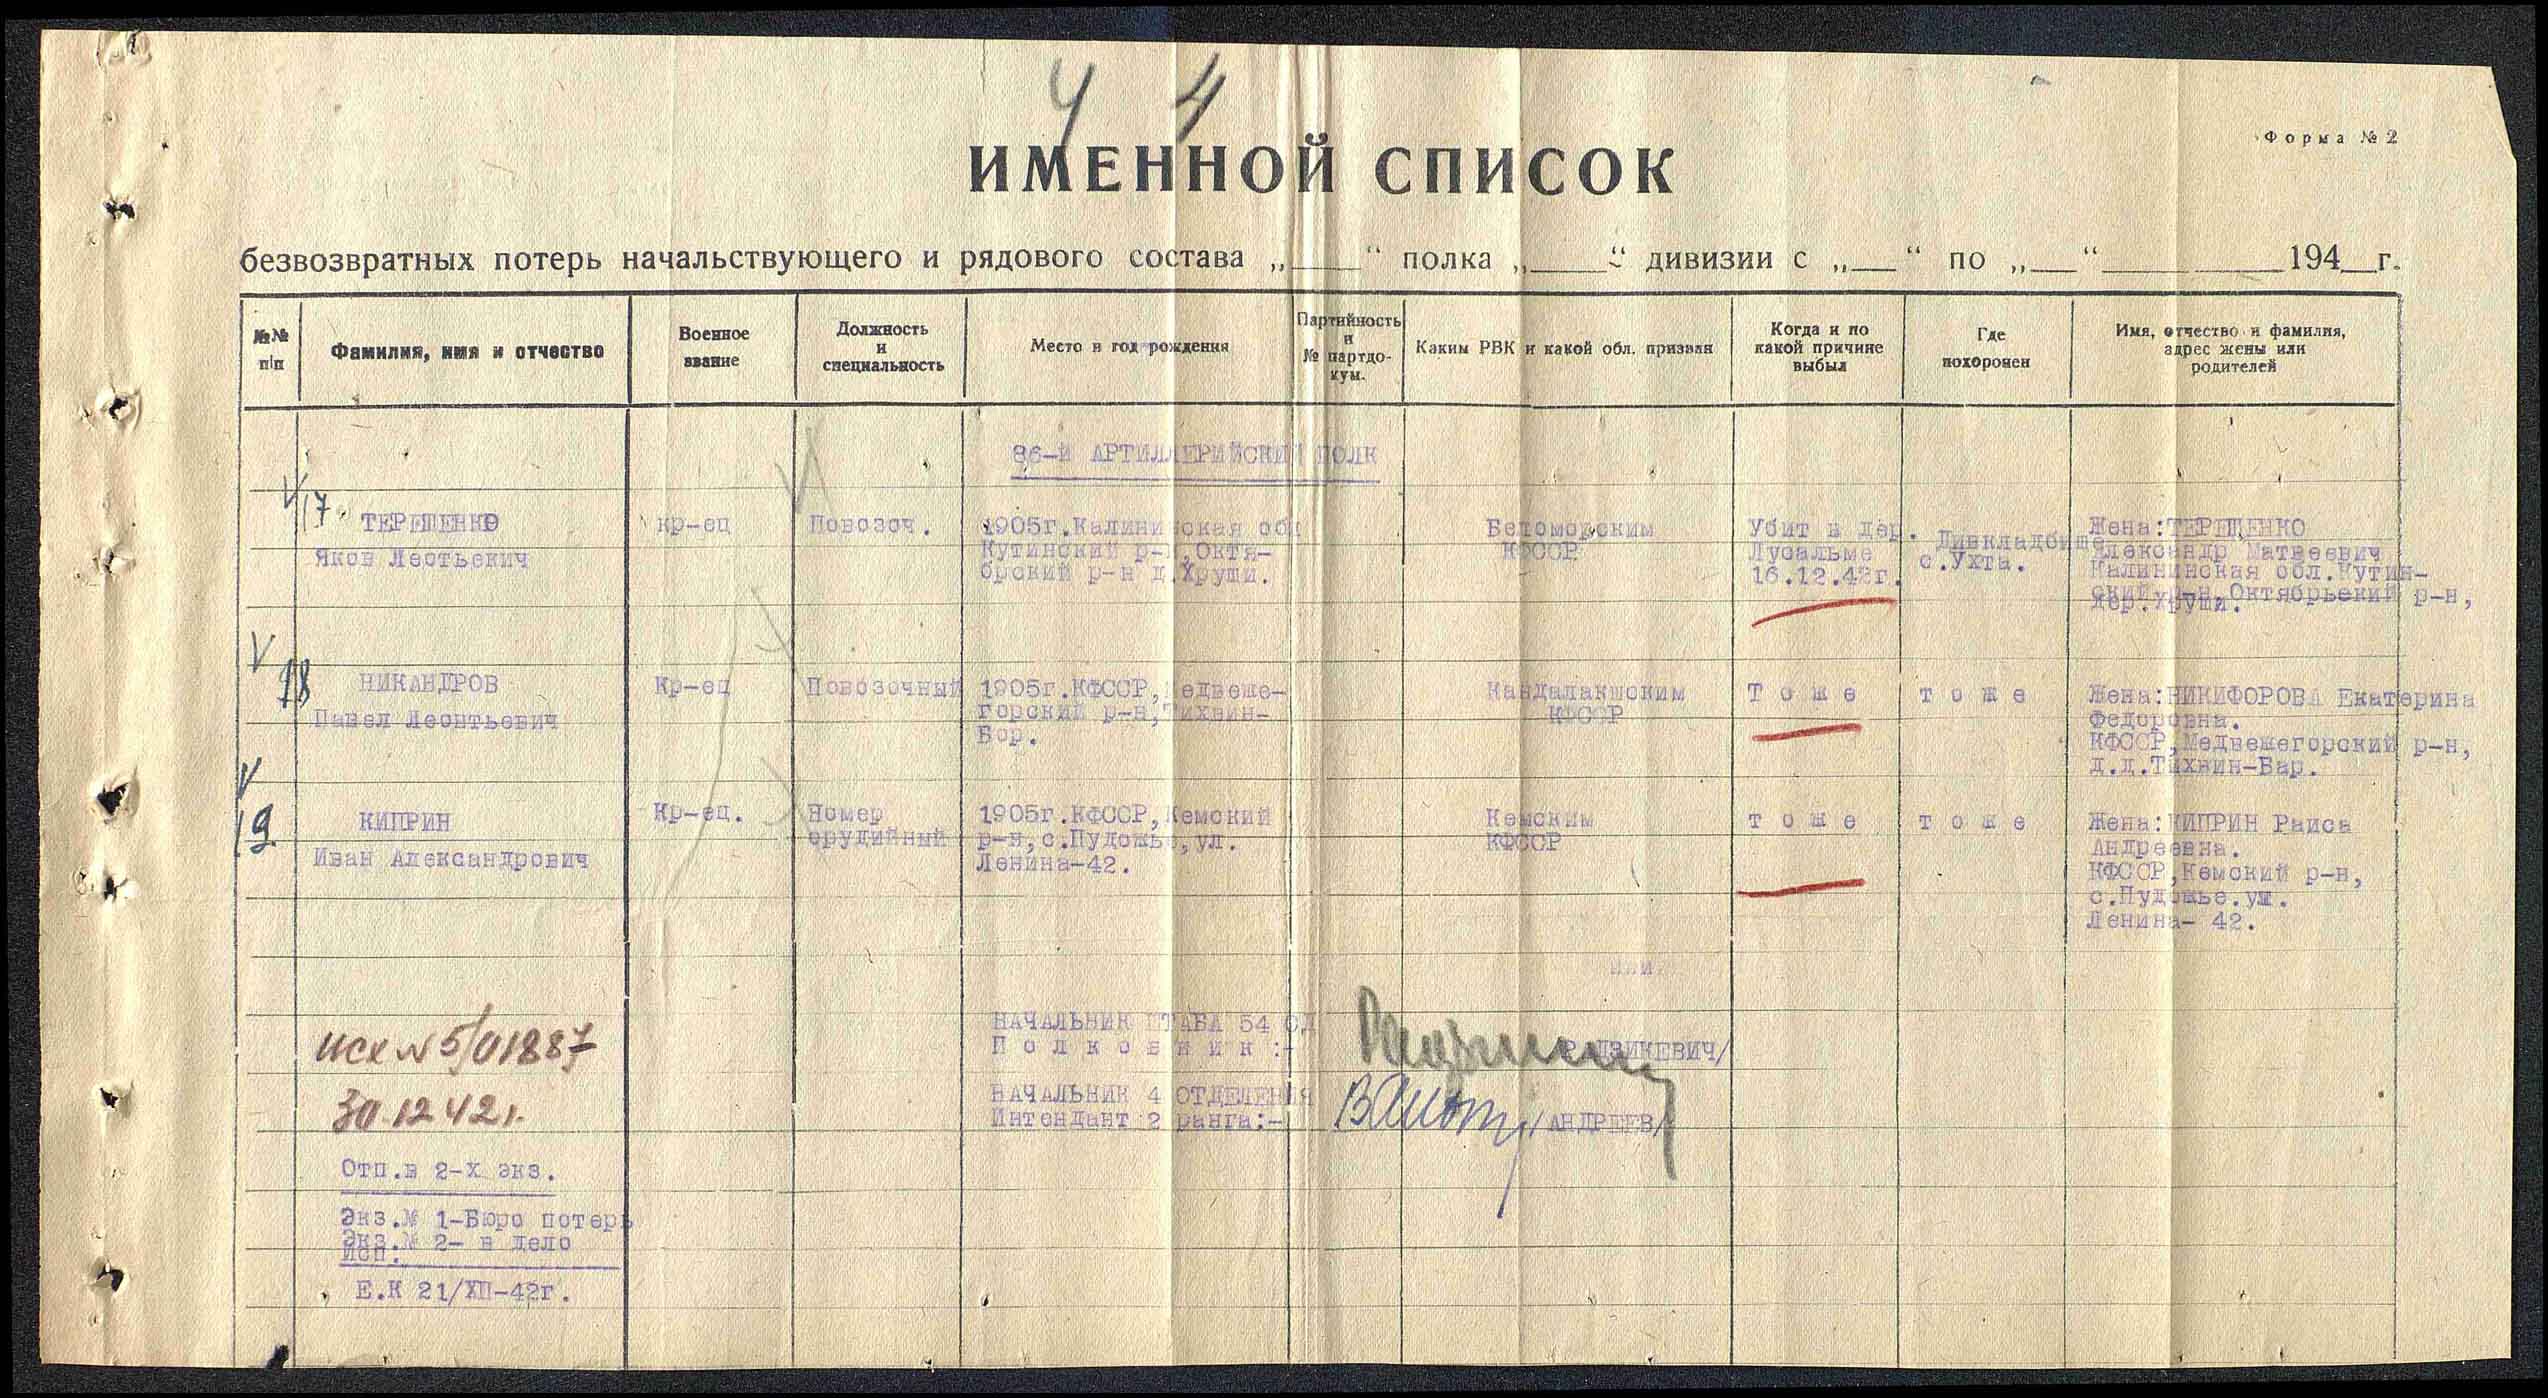 4 4
Форма № 2
ИМЕННОЙ СПИСОК
безвозвратных потерь начальствующего и рядового состава „ “ полка „ “ дивизии с „ “ по „ “ 194 г.
№№ п/п
Фамилия, имя и отчество
Военное звание
Должность и специальность
Место и год рождения
Партийность и № партдо-кум.
Каким РВК и какой обл. призван
Когда и по какой причине выбыл
Где похоронен
Имя, отчество и фамилия, адрес жены или родителей
86-й АРТИЛЛЕРИЙСКИЙ ПОЛК
17
ТЕРЕЩЕНКО
Яков Леотьевич
кр-ец
Повозоч.
1905г.Калининская обл
Кутинский р-н,Октя-
брский р-н д.Хруши.
Беломорским
КФССР
Убит в дер.
Лусальме
16.12.42г.
Дивкладбище
с.Ухта.
Жена:ТЕРЕЩЕНКО
Александр Матвеевич
Калининская обл.Кутин-
ский р-н,Октябрьский р-н,
дер.Хруши.
18
НИКАНДРОВ
Павел Леонтьевич
Кр-ец
Повозочный
1905г.КФССР,Медвеже-
горский р-н,Тихвин-
Бор.
Кандалакшским
КФССР
Т о ж е
т о ж е
Жена:НИКИФОРОВА Екатерина
Федоровна.
КФССР,Медвежегорский р-н,
д.д.Тихвин-Бар.
19
КИПРИН
Иван Александрович
Кр-ец.
Номер
орудийный
1905г.КФССР,Кемский
р-н,с.Пудожье,ул.
Ленина-42.
Кемским
КФССР
т о ж е
т о ж е
Жена:КИПРИН Раиса
Андреевна.
КФССР,Кемский р-н,
с.Пудожье.ул.
Ленина- 42.
НАЧАЛЬНИК ШТАБА 54 СД
П о л к о в н и к :-
РАДЗИКЕВИЧ/
НАЧАЛЬНИК 4 ОТДЕЛЕНИЯ
Интендант 2 ранга:-
/АНДРЕЕВ/
исх № 5/01887
30.12 42 г.
Отп.в 2-х экз.
Экз.№ 1-Бюро потерь
Экз.№ 2- в дело
Исп.
Е.К 21/XII-42г.